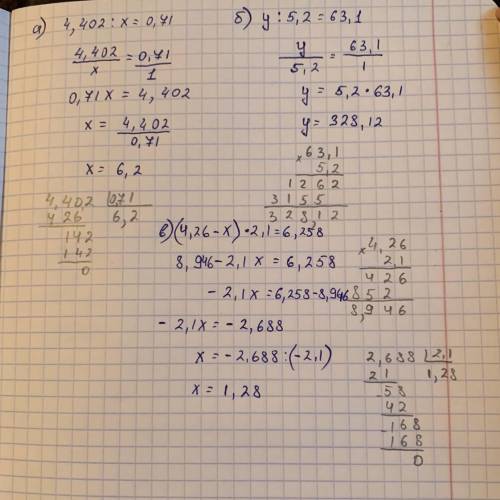 а) 4,402 : x = 0,71
4,402/x = 0,71/1
0,71x = 4,402
x = 4,402/0,71
x = 6,2
4,402 | 0,71
426 6,2
142
142
0
б) y : 5,2 = 63,1
y/5,2 = 63,1/1
y = 5,2 · 63,1
y = 328,12
× 63,1
5,2
1262
3155
328,12
в) (4,26 - x) · 2,1 = 6,258
8,946 - 2,1x = 6,258
- 2,1x = 6,258 - 8,946
- 2,1x = - 2,688
x = - 2,688 : (-2,1)
x = 1,28
× 4,26
2,1
426
852
8,946
2,688 | 2,1
21 1,28
- 58
42
- 168
168
0